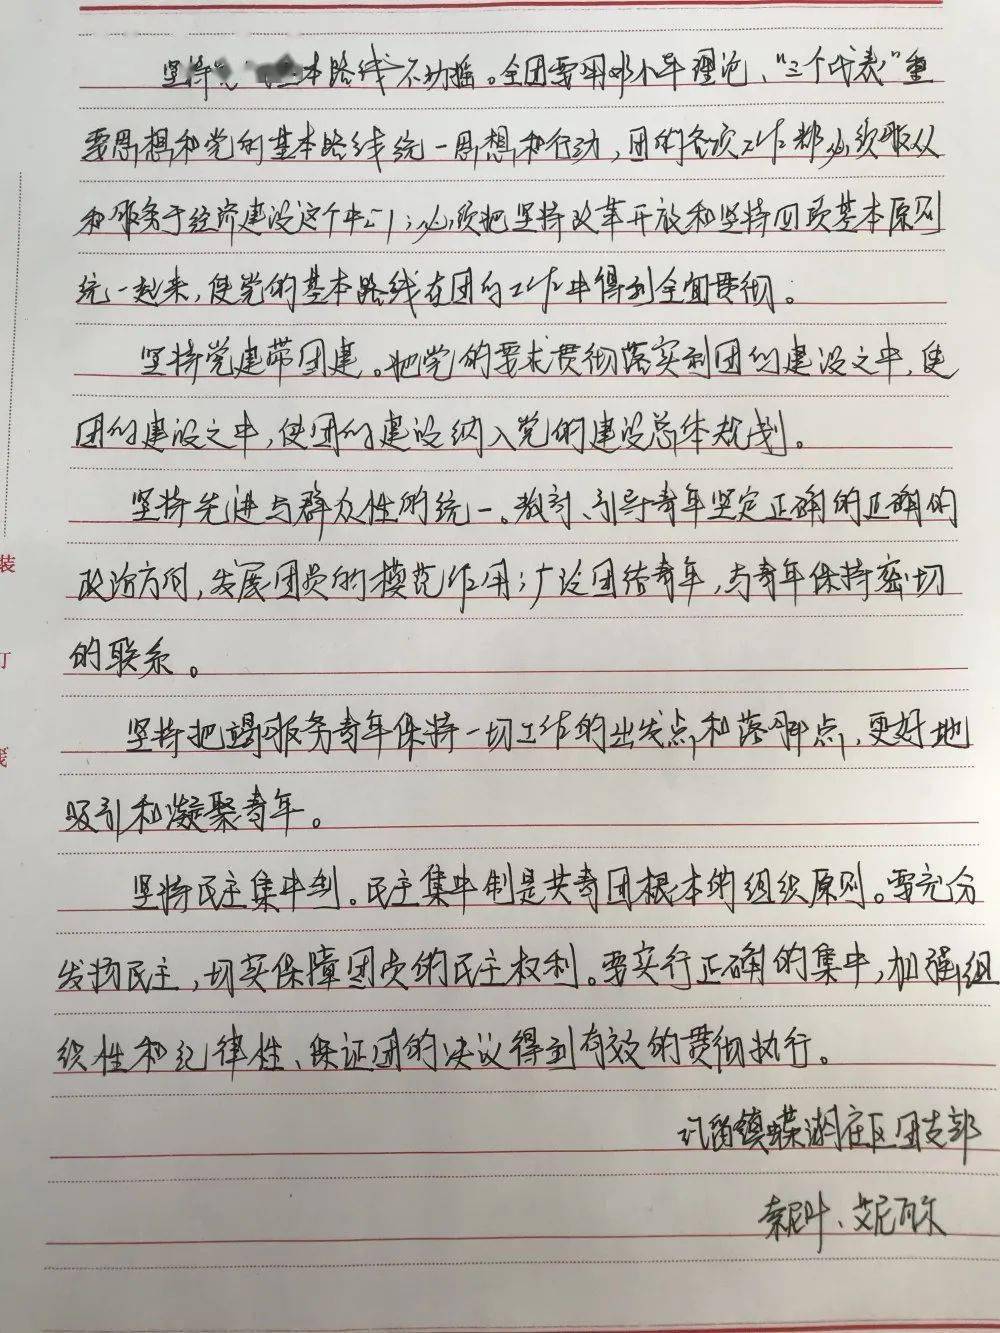 坚持 基本路线不动摇。全团要用邓小平理论、“三个代表”重
要思想和党的基本路线统一思想和行动,团的各项工作都必须服从
和服务于经济建设这个中心;必须把坚持改革开放和坚持四项基本原则
统一起来,使党的基本路线在团的工作中得到全面贯彻。
坚持党建带团建。把党的要求贯彻落实到团的建设之中,使
团的建设之中,使团的建设纳入党的建设总体规划。
坚持先进与群众性的统一。教育、引导青年坚定正确的正确的
政治方向,发展团员的模范作用;广泛团结青年,与青年保持密切
的联系。
坚持把竭服务青年保持一切工作的出发点和落脚点,更好地
吸引和凝聚青年。
坚持民主集中制。民主集中制是共青团根本的组织原则。要充分
发扬民主,切实保障团员的民主权利。要实行正确的集中,加强组
织性和纪律性、保证团的决议得到有效的贯彻执行。
镇蝶湖庄区团支部
秦尼叶、艾尼瓦尔
装
订